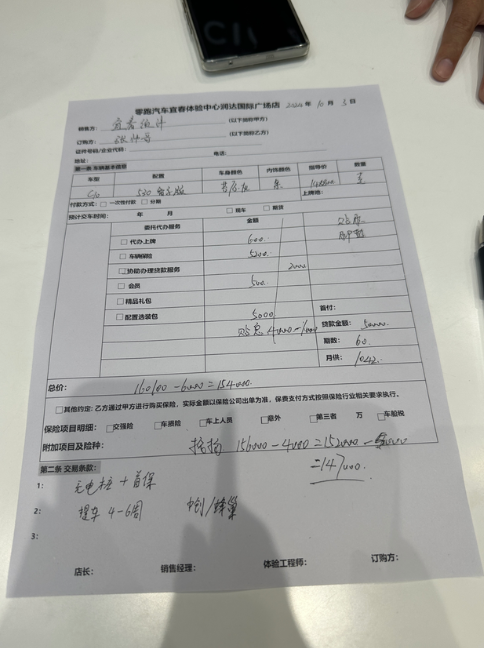 零跑汽车宜春体验中心润达国际广场店 2024 年 10 月 3 日
销售方： (以下简称甲方)
订购方： (以下简称乙方)
证件号码/企业代码： 电话：
地址：
第一条 车辆基本信息
车型 配置 车身颜色 内饰颜色 指导价 数量
C10 530
付款方式：□一次性付款 □分期 上牌地：
预计交车时间： 年 月 □现车 □期货
委托代办服务 金额
□代办上牌 600.
□车辆保险 5200.
□协助办理贷款服务 2000
□会员 500.
□精品礼包
□配置选装包 5000
首付：
4000-1000 贷款金额：50000
期数：60.
月供：1042.
总价： 160100-6000=154000.
□其他约定：乙方通过甲方进行购买保险，实际金额以保险公司出单为准，保费支付方式按照保险行业相关要求执行。
保险项目明细：□交强险 □车损险 □车上人员 □意外 □第三者 万 □车船税
附加项目及险种： 156000-4000=152000-
=147000.
第二条 交易条款：
1： 充电桩+首保
2： 提车 4-6周
3：
店长： 销售经理： 体验工程师： 订购方：